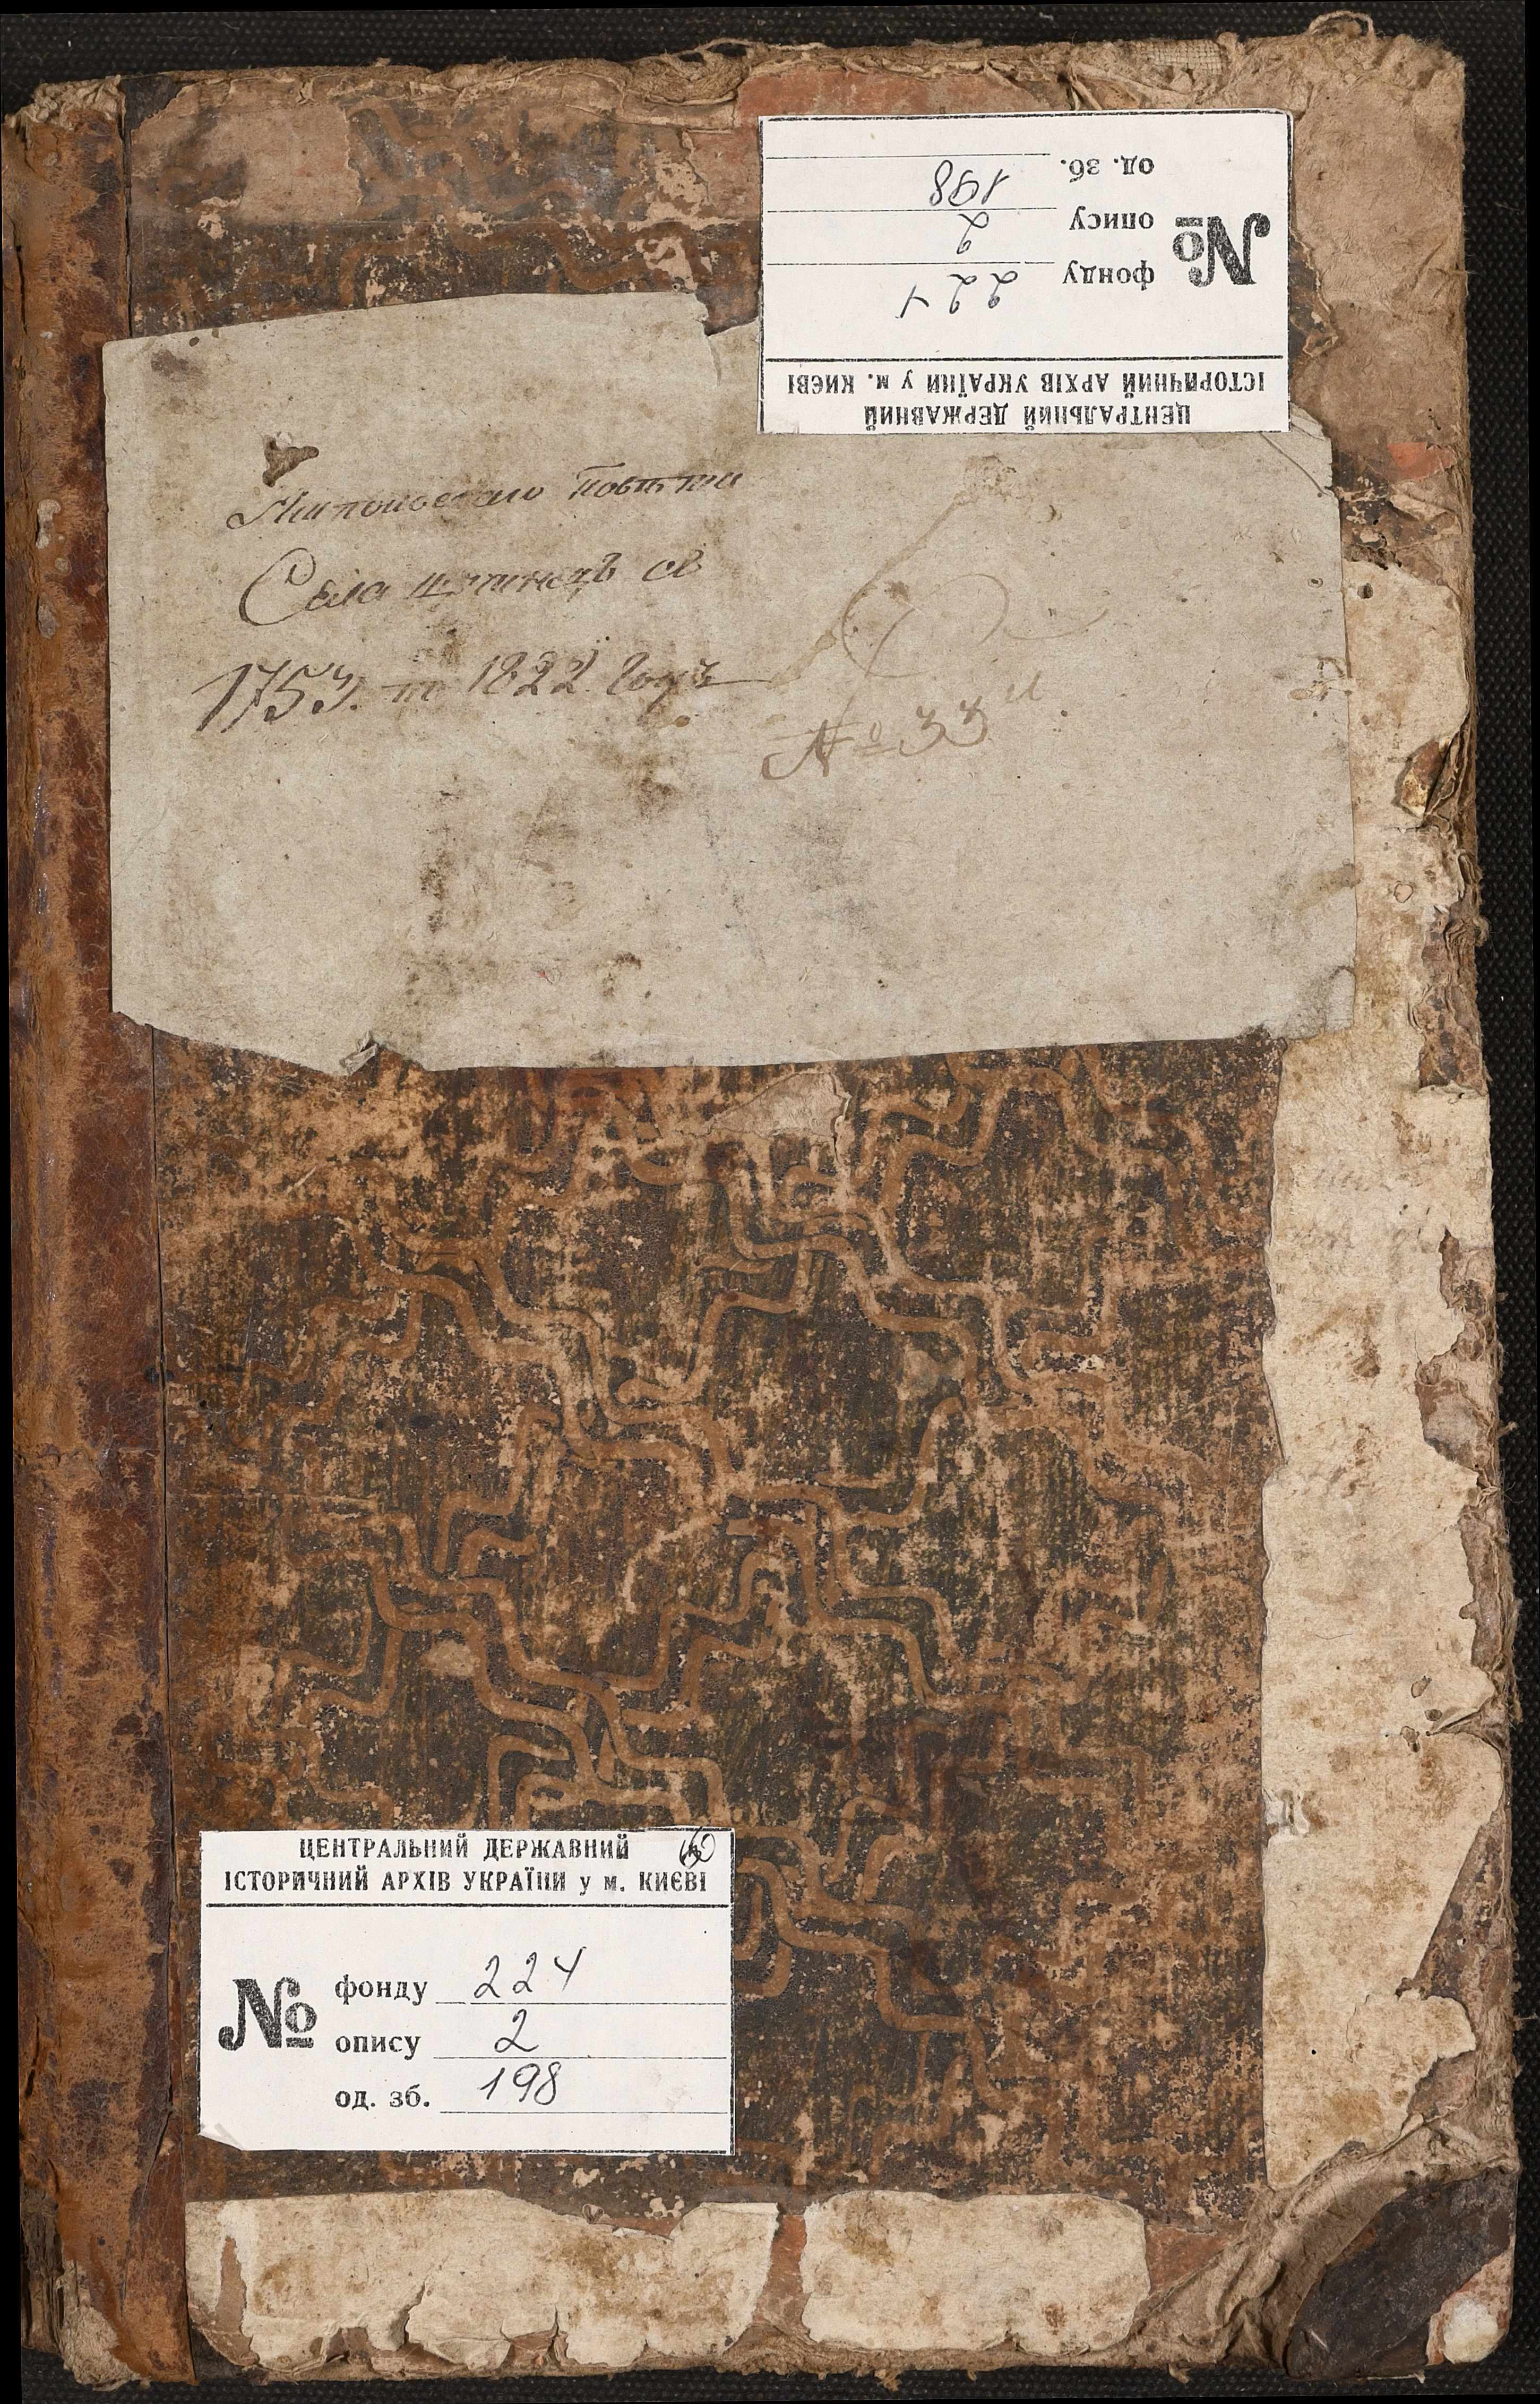 ЦЕНТРАЛЬНИЙ ДЕРЖАВНИЙ
ІСТОРИЧНИЙ АРХІВ УКРАЇНИ у м. КИЄВІ
№
фонду 224
опису 2
од. зб. 198
Липовецкаго повѣта
Села
1753. по 1822. Годъ
№ 33
ЦЕНТРАЛЬНИЙ ДЕРЖАВНИЙ
ІСТОРИЧНИЙ АРХІВ УКРАЇНИ у м. КИЄВІ
№
фонду 224
опису 2
од. зб. 198